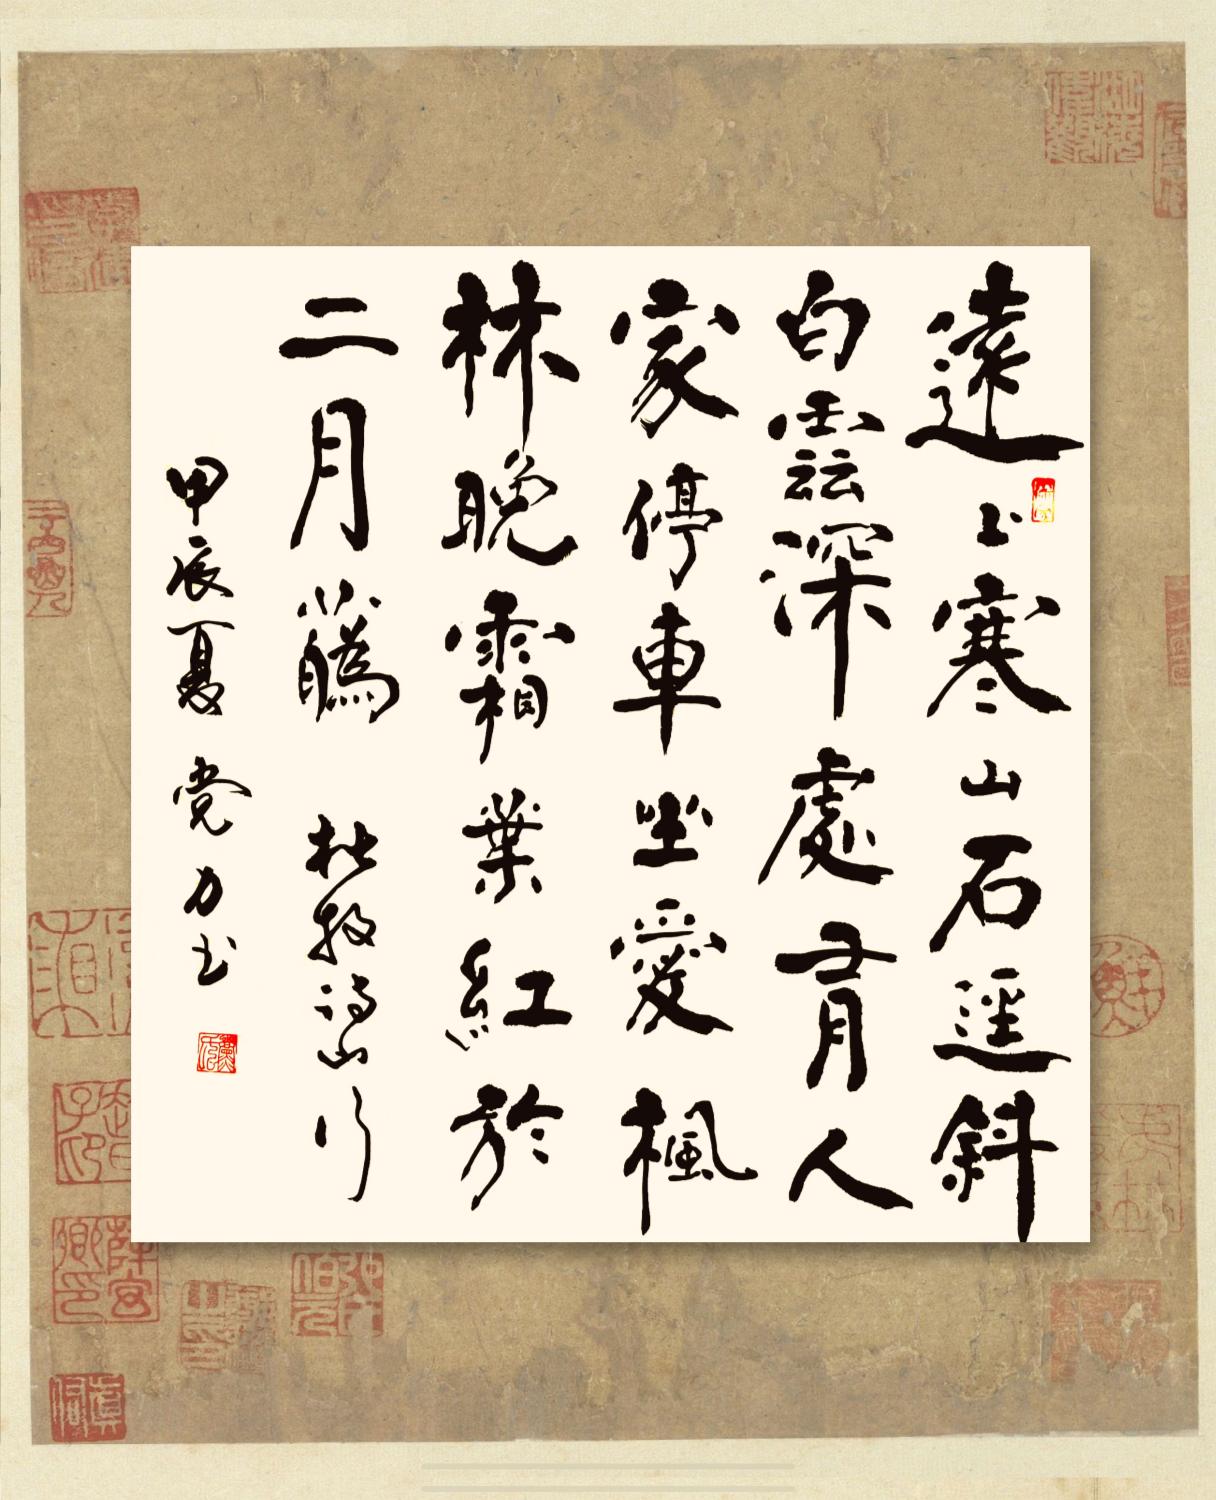 遠上寒山石逕斜
白雲深處有人
家停車坐愛楓
林晚霜葉紅於
二月蘤 杜牧诗山行
甲辰夏 党力书